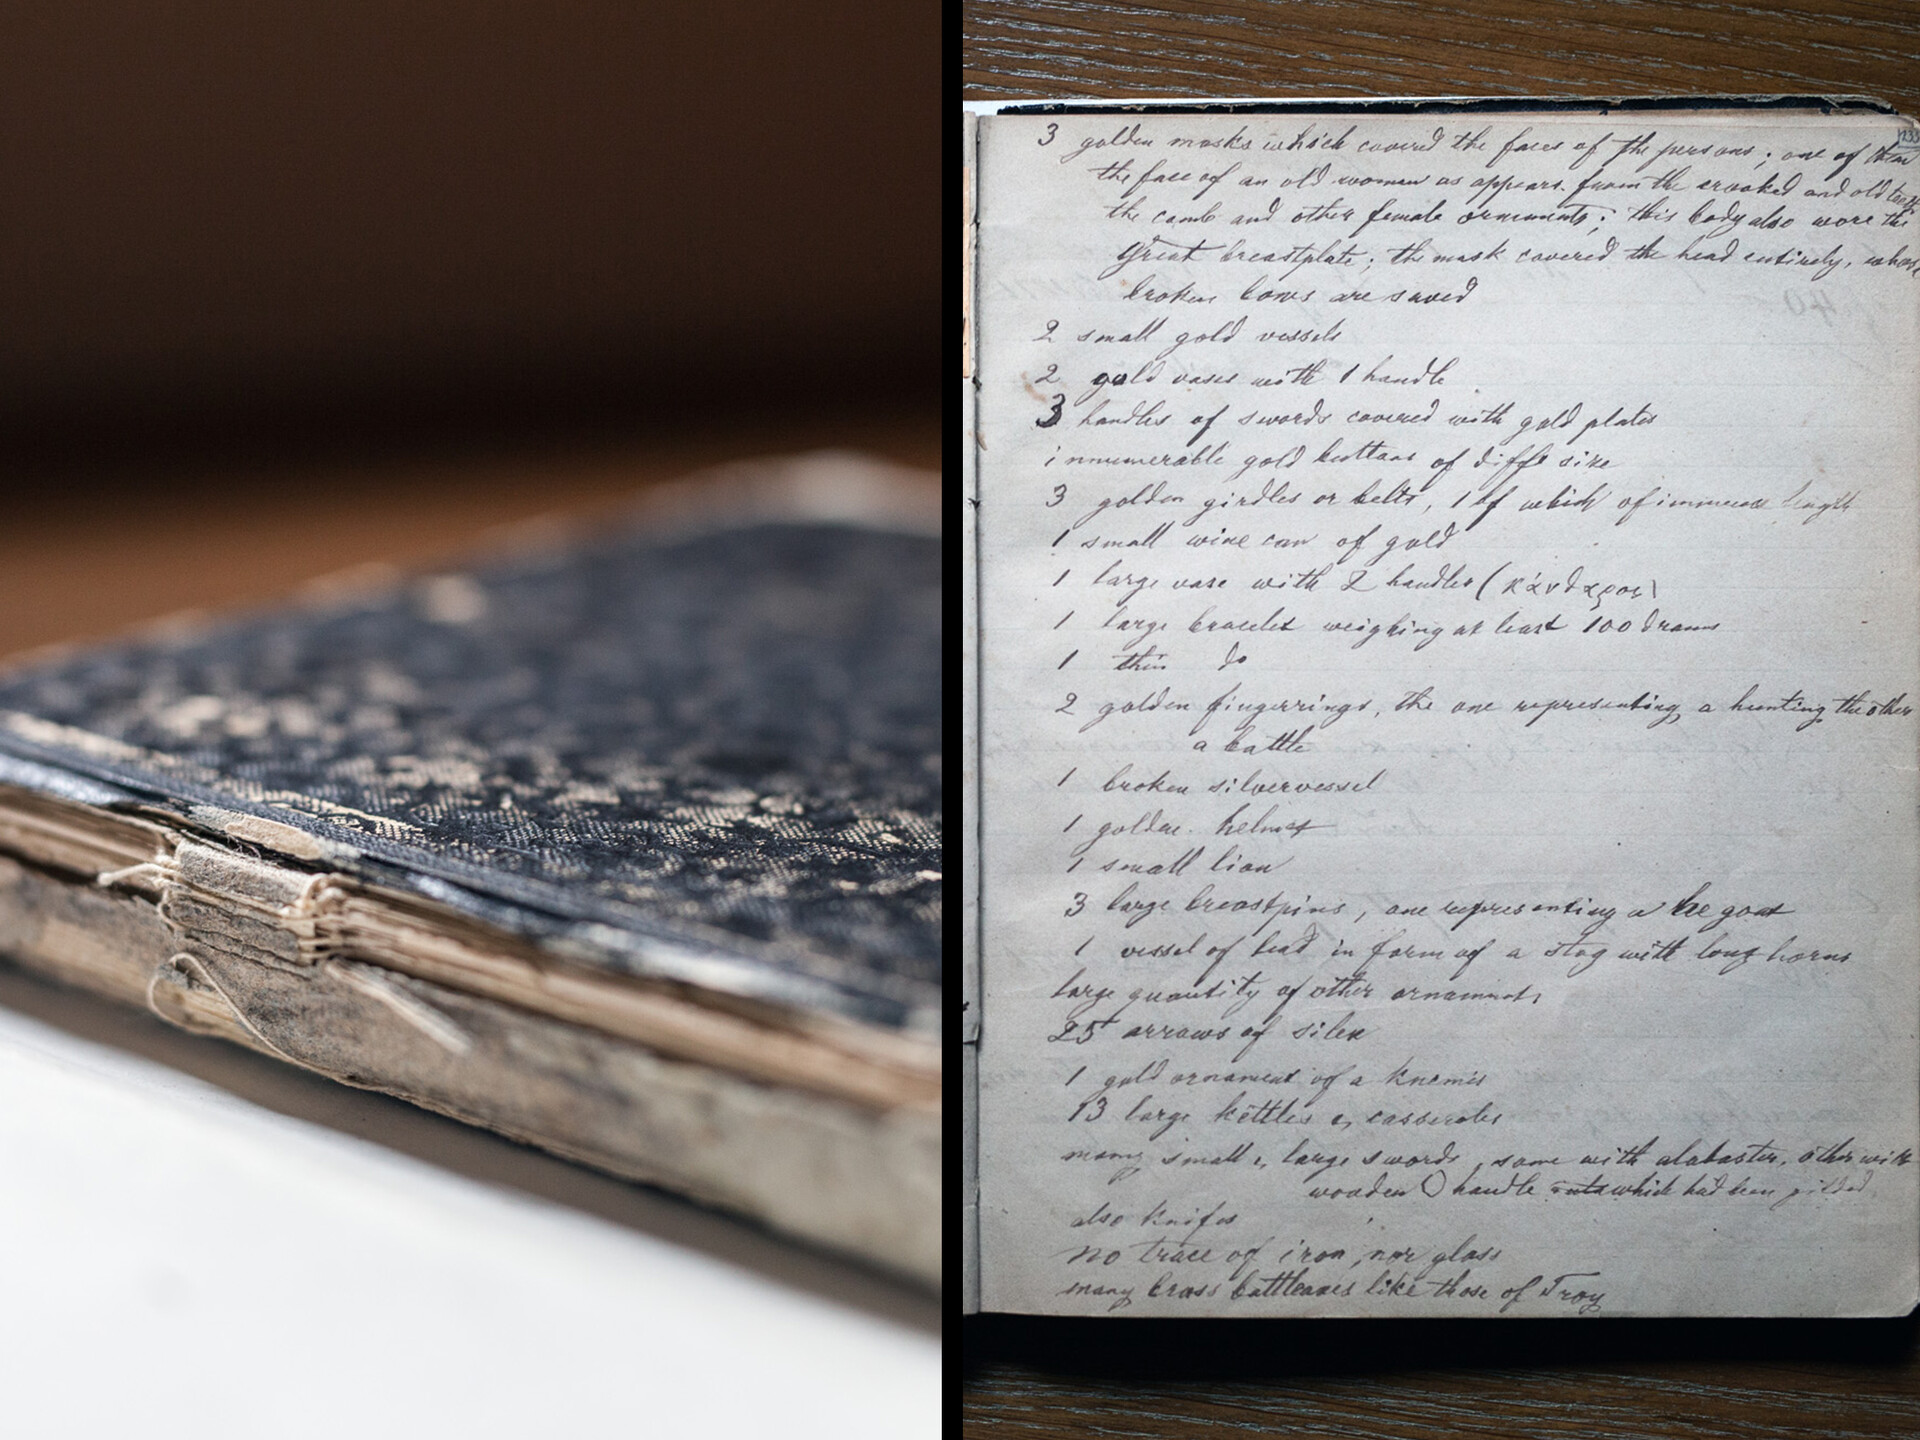 233
3 golden masks which covered the faces of the persons; one of them
the face of an old woman as appears from the crooked and old
the comb and other female ornaments; this body also wore the
great breastplate; the mask covered the head entirely, whose
broken bones are saved
2 small gold vessels
2 gold vases with 1 handle
3 handles of swords covered with gold plates
innumerable gold buttons of difft size
3 golden girdles or belts, 1 of which of immense length
1 small wine can of gold
1 large vase with 2 handles (κάνθαρος)
1 large bracelet weighing at least 100 drams
1 thin do
2 golden fingerrings, the one representing a hunting the other
a battle
1 broken silvervessel
1 golden helmet
1 small lion
3 large breastpins, one representing a he goat
1 vessel of lead in form of a stag with long horns
large quantity of other ornaments
25 arrows of silex
1 gold ornament of a knemis
13 large kettles & casseroles
many small & large swords, some with alabaster, other with
wooden handle which had been gilded
also knifes
no trace of iron, nor glass
many brass battleaxes like those of Troy